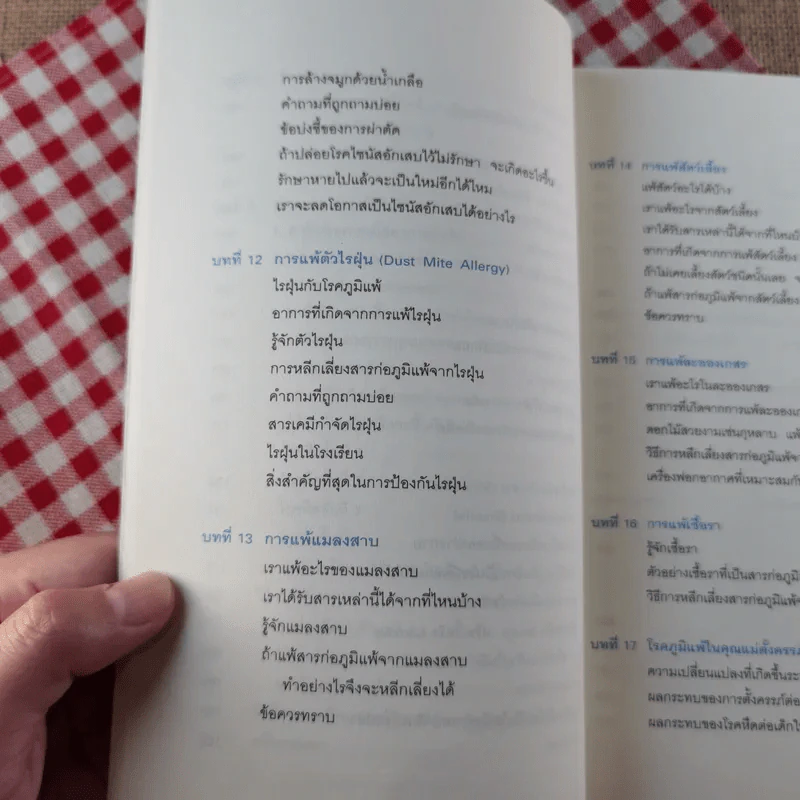 การล้างจมูกด้วยน้ำเกลือ
คำถามที่ถูกถามบ่อย
ข้อบ่งชี้ของการผ่าตัด
ถ้าปล่อยโรคไซนัสอักเสบไว้ไม่รักษา จะเกิดอะไรขึ้น
รักษาหายไปแล้วจะเป็นใหม่อีกได้ไหม
เราจะลดโอกาสเป็นไซนัสอักเสบได้อย่างไร
บทที่ 12 การแพ้ตัวไรฝุ่น (Dust Mite Allergy)
ไรฝุ่นกับโรคภูมิแพ้
อาการที่เกิดจากการแพ้ไรฝุ่น
รู้จักตัวไรฝุ่น
การหลีกเลี่ยงสารก่อภูมิแพ้จากไรฝุ่น
คำถามที่ถูกถามบ่อย
สารเคมีกำจัดไรฝุ่น
ไรฝุ่นในโรงเรียน
สิ่งสำคัญที่สุดในการป้องกันไรฝุ่น
บทที่ 13 การแพ้แมลงสาบ
เราแพ้อะไรของแมลงสาบ
เราได้รับสารเหล่านี้ได้จากที่ไหนบ้าง
รู้จักแมลงสาบ
ถ้าแพ้สารก่อภูมิแพ้จากแมลงสาบ
ทำอย่างไรจึงจะหลีกเลี่ยงได้
ข้อควรทราบ
บทที่ 14 การแพ้สัตว์เลี้ยง
แพ้สัตว์อะไรได้บ้าง
เราแพ้อะไรจากสัตว์เลี้ยง
เราได้รับสารเหล่านี้ได้จากที่ไหนบ้
อาการที่เกิดจากการแพ้สัตว์เลี้ยง
ถ้าไม่เคยเลี้ยงสัตว์ชนิดนั้นเลย
ถ้าแพ้สารก่อภูมิแพ้จากสัตว์เลี้ยง
ข้อควรทราบ
บทที่ 15 การแพ้ละอองเกสร
เราแพ้อะไรในละอองเกสร
อาการที่เกิดจากการแพ้ละอองเก
ดอกไม้สวยงามเช่นกุหลาบ แพ้
วิธีการหลีกเลี่ยงสารก่อภูมิแพ้จา
เครื่องฟอกอากาศที่เหมาะสมกั
บทที่ 16 การแพ้เชื้อรา
รู้จักเชื้อรา
ตัวอย่างเชื้อราที่เป็นสารก่อภูมิแพ้
วิธีการหลีกเลี่ยงสารก่อภูมิแพ้จา
บทที่ 17 โรคภูมิแพ้ในคุณแม่ตั้งครรภ
ความเปลี่ยนแปลงที่เกิดขึ้นระ
ผลกระทบของการตั้งครรภ์ต่อ
ผลกระทบของโรคหืดต่อเด็กใ